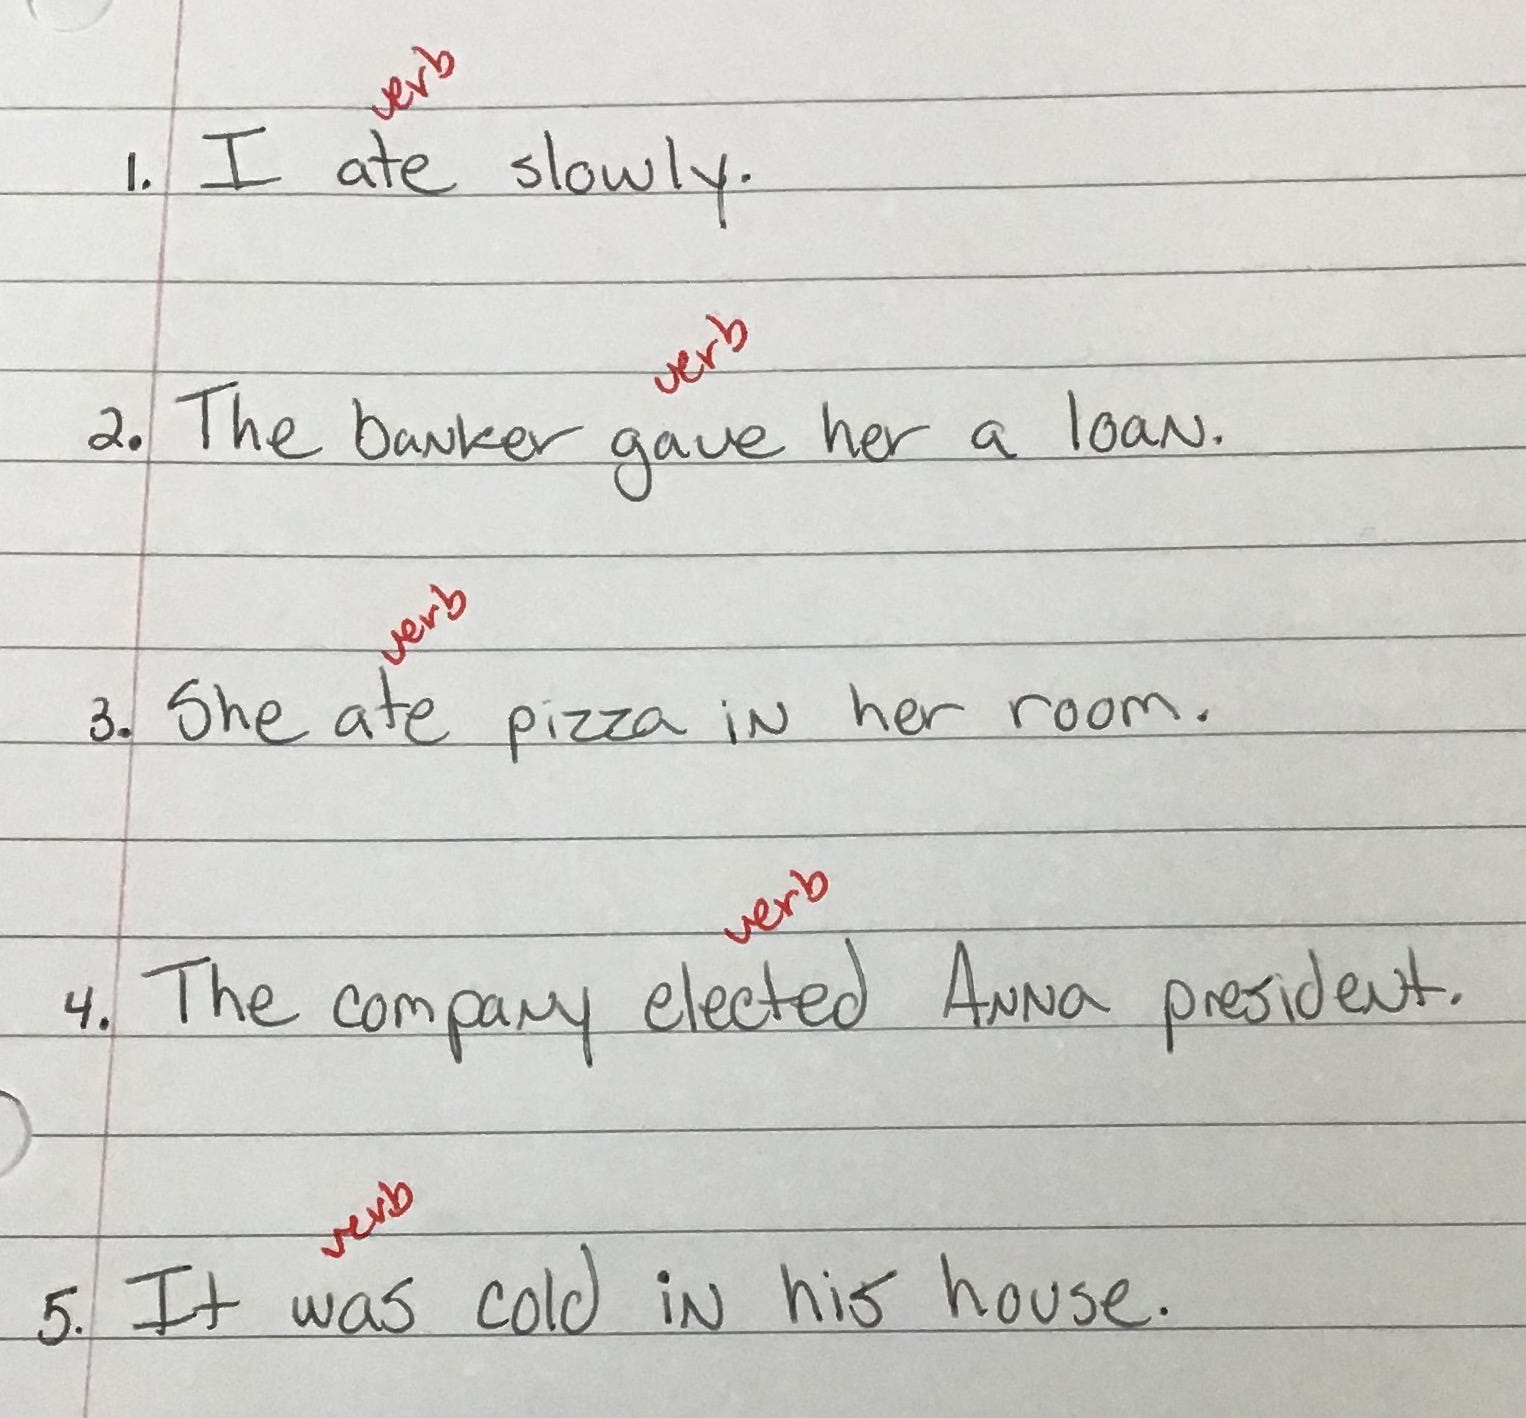 verb
1. I ate slowly.
verb
2. The banker gave her a loan.
verb
3. She ate pizza in her room.
verb
4. The company elected Anna president.
verb
5. It was cold in his house.